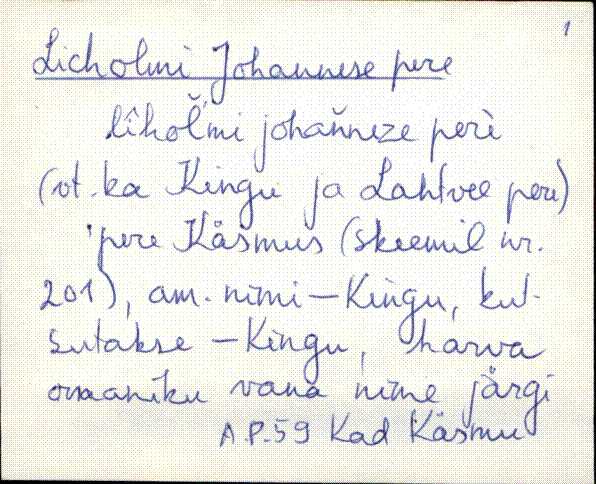 1
Licholmi Johannese pere
lîhoľmi johaňneze perè
(vt. ka Kingu ja Lahtvee pere)
'pere Käsmus (skeemil nr.
201), am. nimi – Kingu, kut-
sutakse – Kingu, harva
omaniku vana nime järgi
A.P. 59 Kad Käsmu